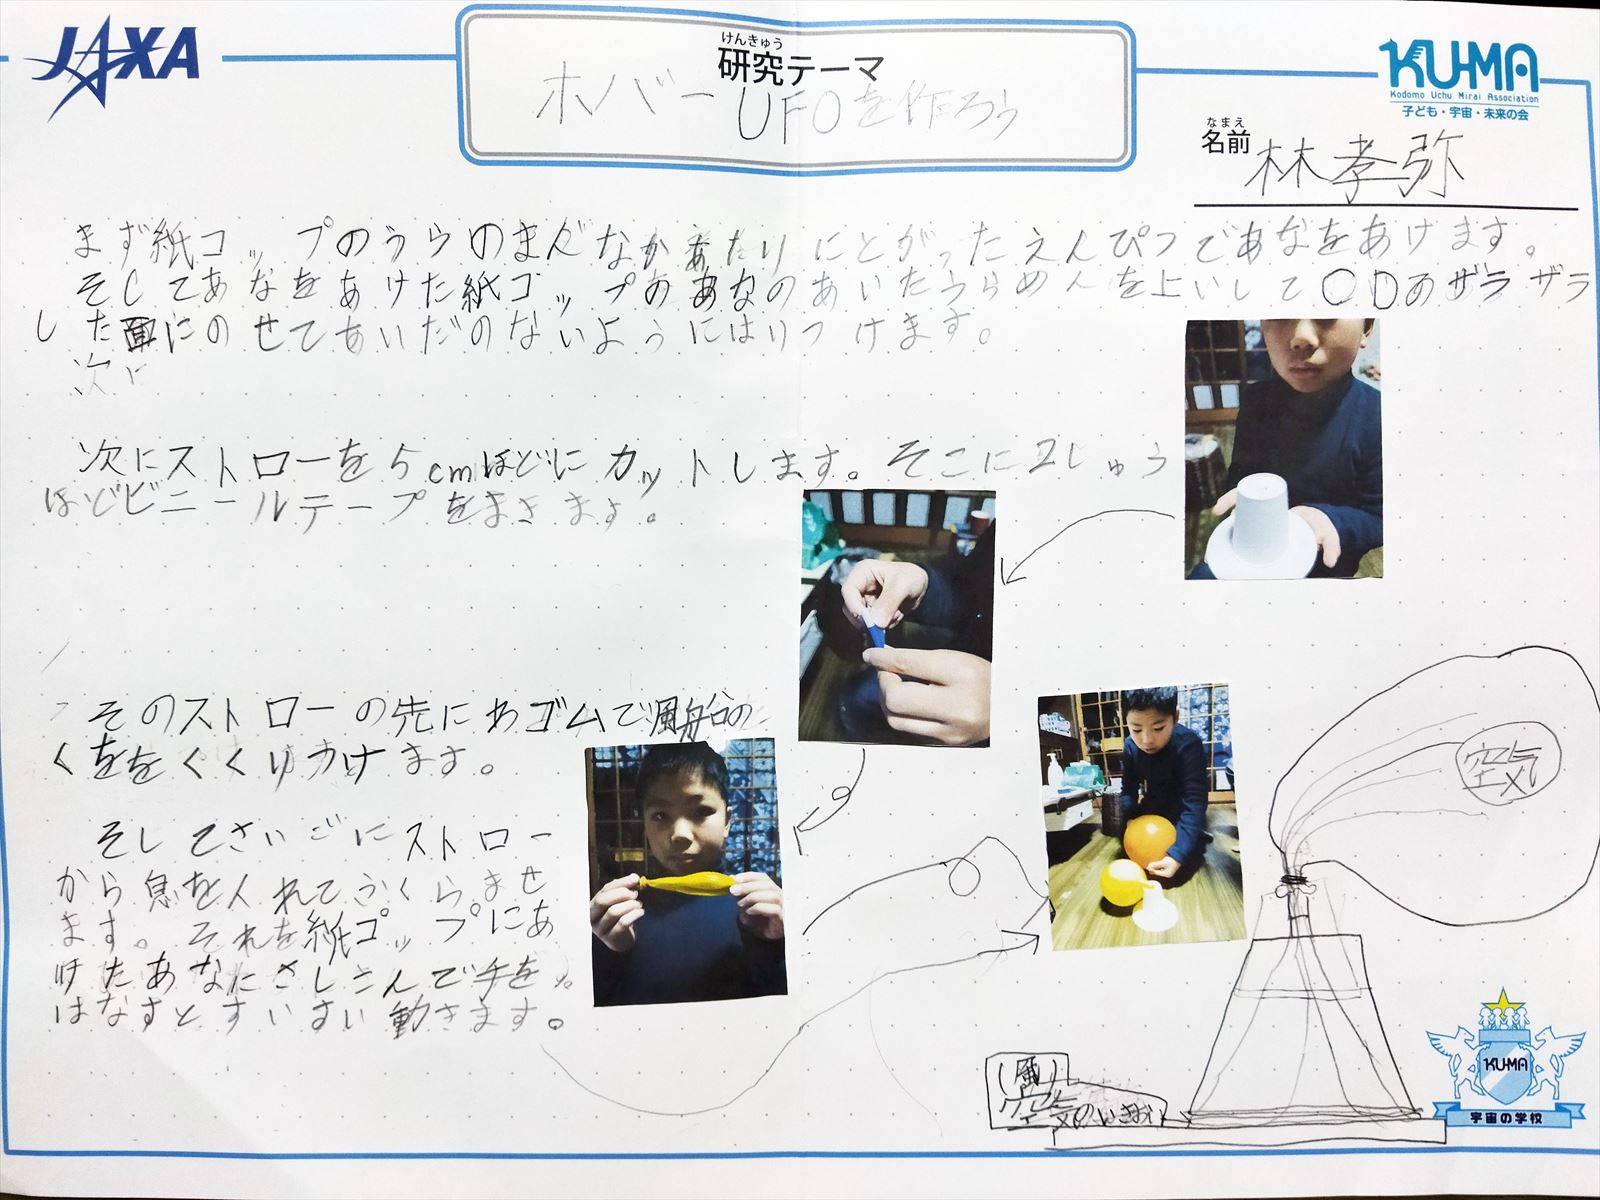 JAXA
けんきゅう
研究テーマ
ホバーUFOを作ろう
KU-MA
Kodomo Uchu Mirai Association
子ども・宇宙・未来の会
なまえ
名前
林孝弥
まず紙コップのうらのまんなかあたりにとがったえんぴつであなをあけます。
そしてあなをあけた紙コップのあなのあいたうらめんを上いしてCDのザラザラ
した面にのせてあいだのないようにはりつけます。
次に
次にストローを5cmほどにカットします。そこに2しゅう
ほどビニールテープをまきます。
そのストローの先にわゴムで風船の
くををくくりつけます。
そしてさいごにストロー
から息を入れてふくらませ
ます。それを紙コップにあ
けたあなにさしこんで手を
はなすとすいすい動きます。
空気
(風)
空気のいきおい
KU-MA
宇宙の学校